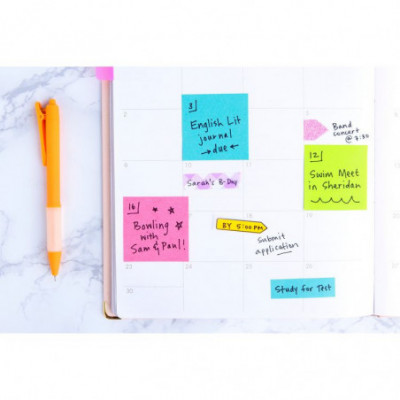 3
English Lit
journal
due
Band
concert
@ 8:30
12
Swim Meet
in Sheridan
Sarah's B-Day
16
Bowling
with
Sam & Paul!
BY 5:00 PM
Submit
application
23
Study for Test
30